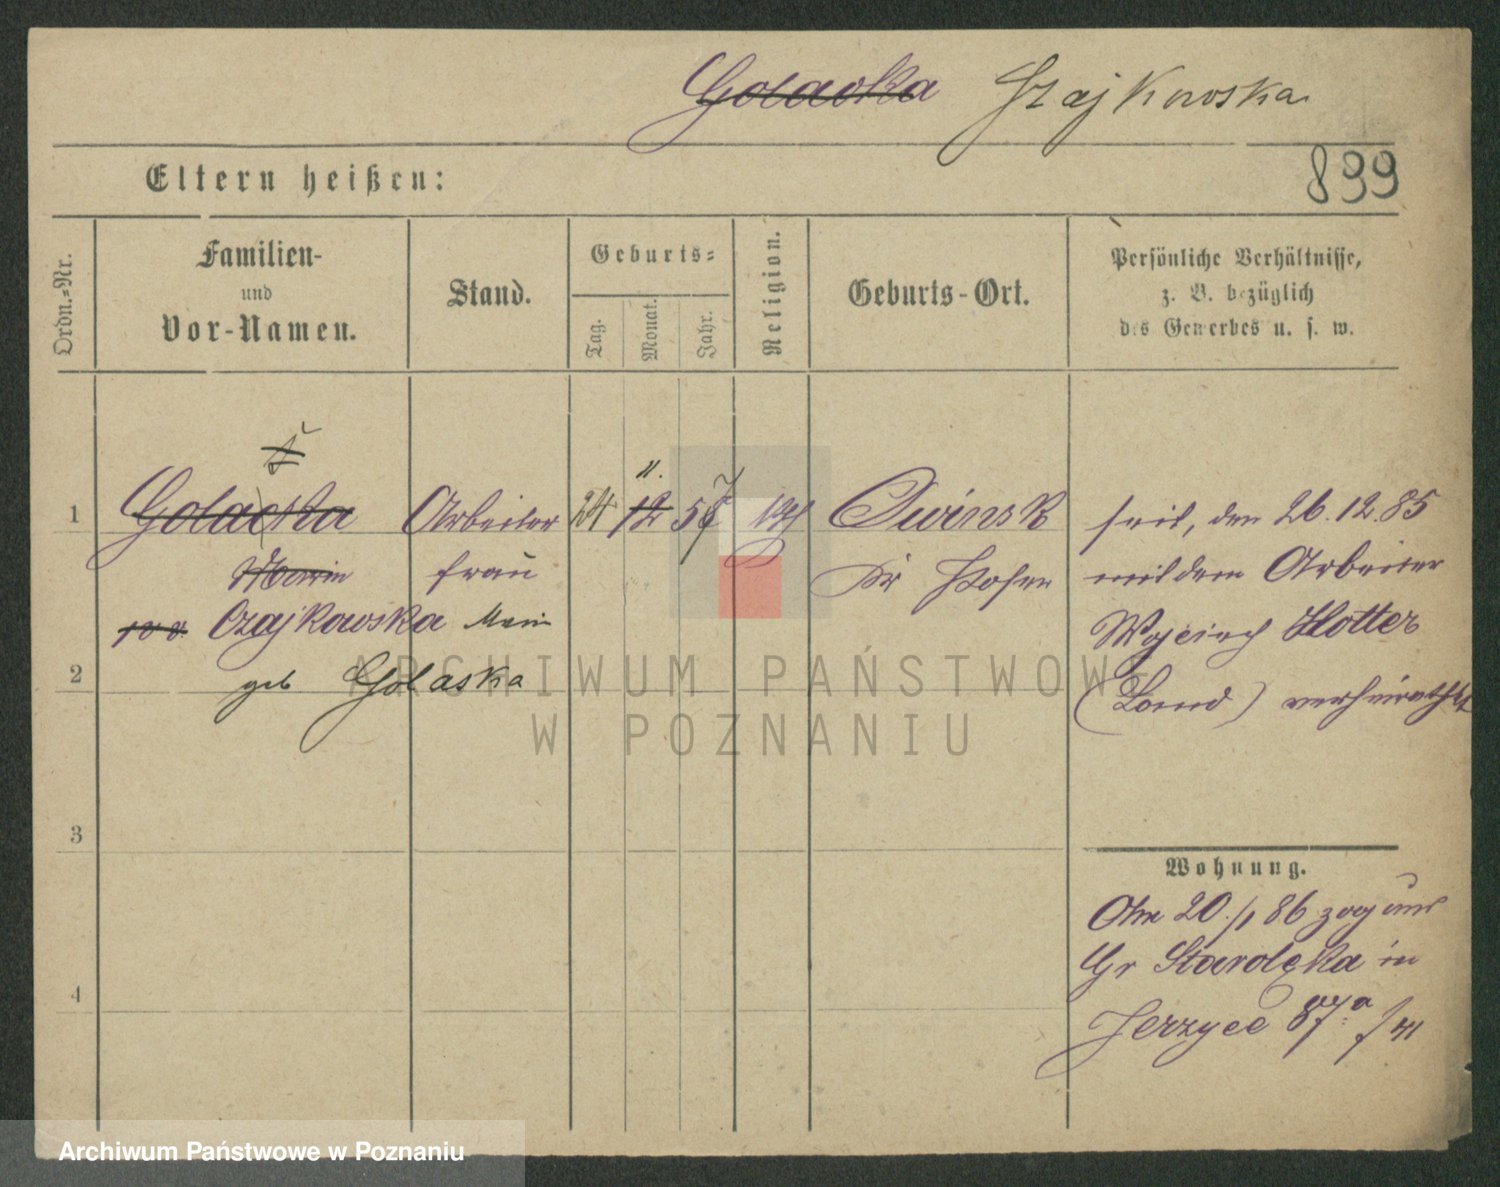 Golaska Czajkowska
Eltern heißen:
899
Ordn.-Nr.
Familien-
und
Vor-Namen.
Stand.
Geburts-
Tag.
Monat.
Jahr.
Religion.
Geburts-Ort.
Persönliche Verhältnisse,
z. B. bezüglich
des Gewerbes u. s. w.
1
Golaska
Marie
Czajkowska Marie
geb Golaska
Arbeiter
frau
24
11.
12
57
Owinsk
Kr Posen
seit, den 26.12.85
mit dem Arbeiter
Wojciech Hotter
(Land) verheirathet
2
3
4
Wohnung.
Am 20./1 86 zog aus
Gr Starolęka in
Jerzyce 87a
ARCHIWUM PAŃSTWOWE
W POZNANIU
Archiwum Państwowe w Poznaniu